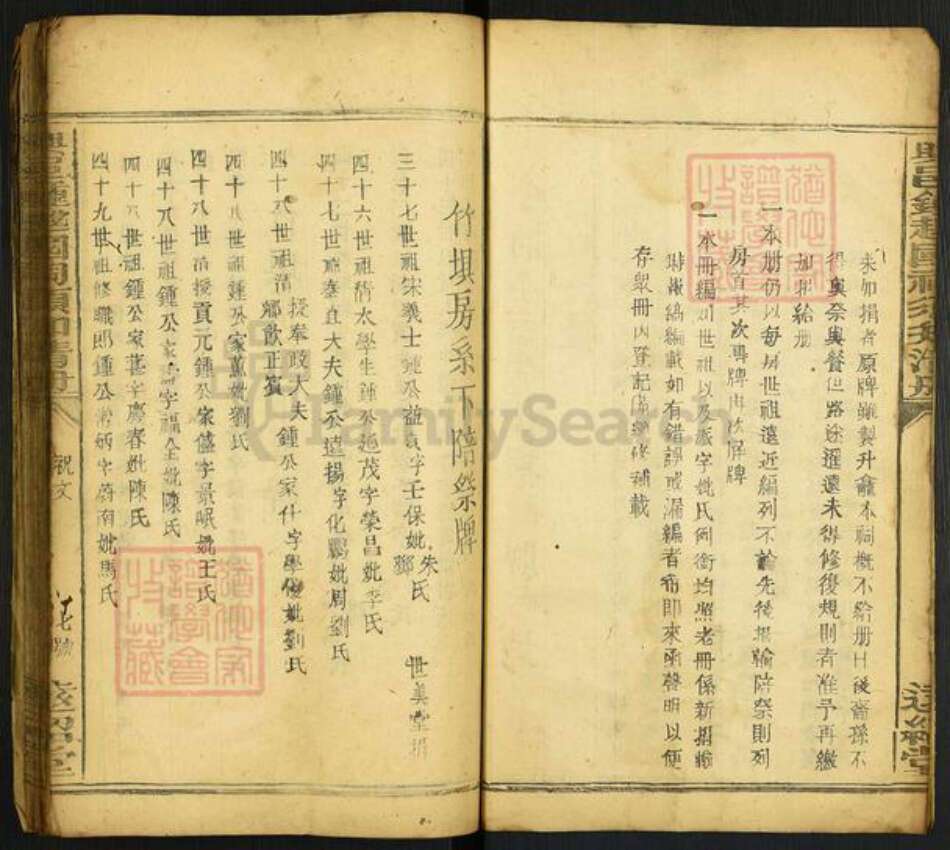 未加捐者原牌雖製升龕本祠概不給册日後裔孫不
得與祭與餐但路途遥遠未得修復規則者准予再繳
加批給册
一本册仍以每房世祖遠近編列不論先後捐輸陪祭則列
房首其次專牌由次屏牌
一本冊編列世祖以及派字妣氏例銜均照老冊係新捐輸
時報稿編載如有錯誤或漏編者布即來函聲明以便
存眾冊內登記俟續修補載
達經堂
竹壩房系下陪祭牌
三十七世祖宋義士鍾公益字壬保妣鄧朱氏 世美堂捐
四十六世祖清太學生鍾公廷茂字榮昌妣李氏
四十七世祖奉直大夫鍾公遠揚字化鵬妣周劉氏
四十八世祖清授奉政大夫鄉飲正賓鍾公家什字學俊妣劉氏
四十八世祖鍾公家薫妣劉氏
四十八世清授貢元鍾公家儲字景岷妣王氏
四十八世祖鍾公家字福全妣陳氏
四十八世祖鍾公家葚字慶春妣陳氏
四十九世祖修職郎鍾公常炳字蔚南妣馬氏
祝文
號
FamilySearch
猶他家譜學會收藏
猶他家譜學會收藏